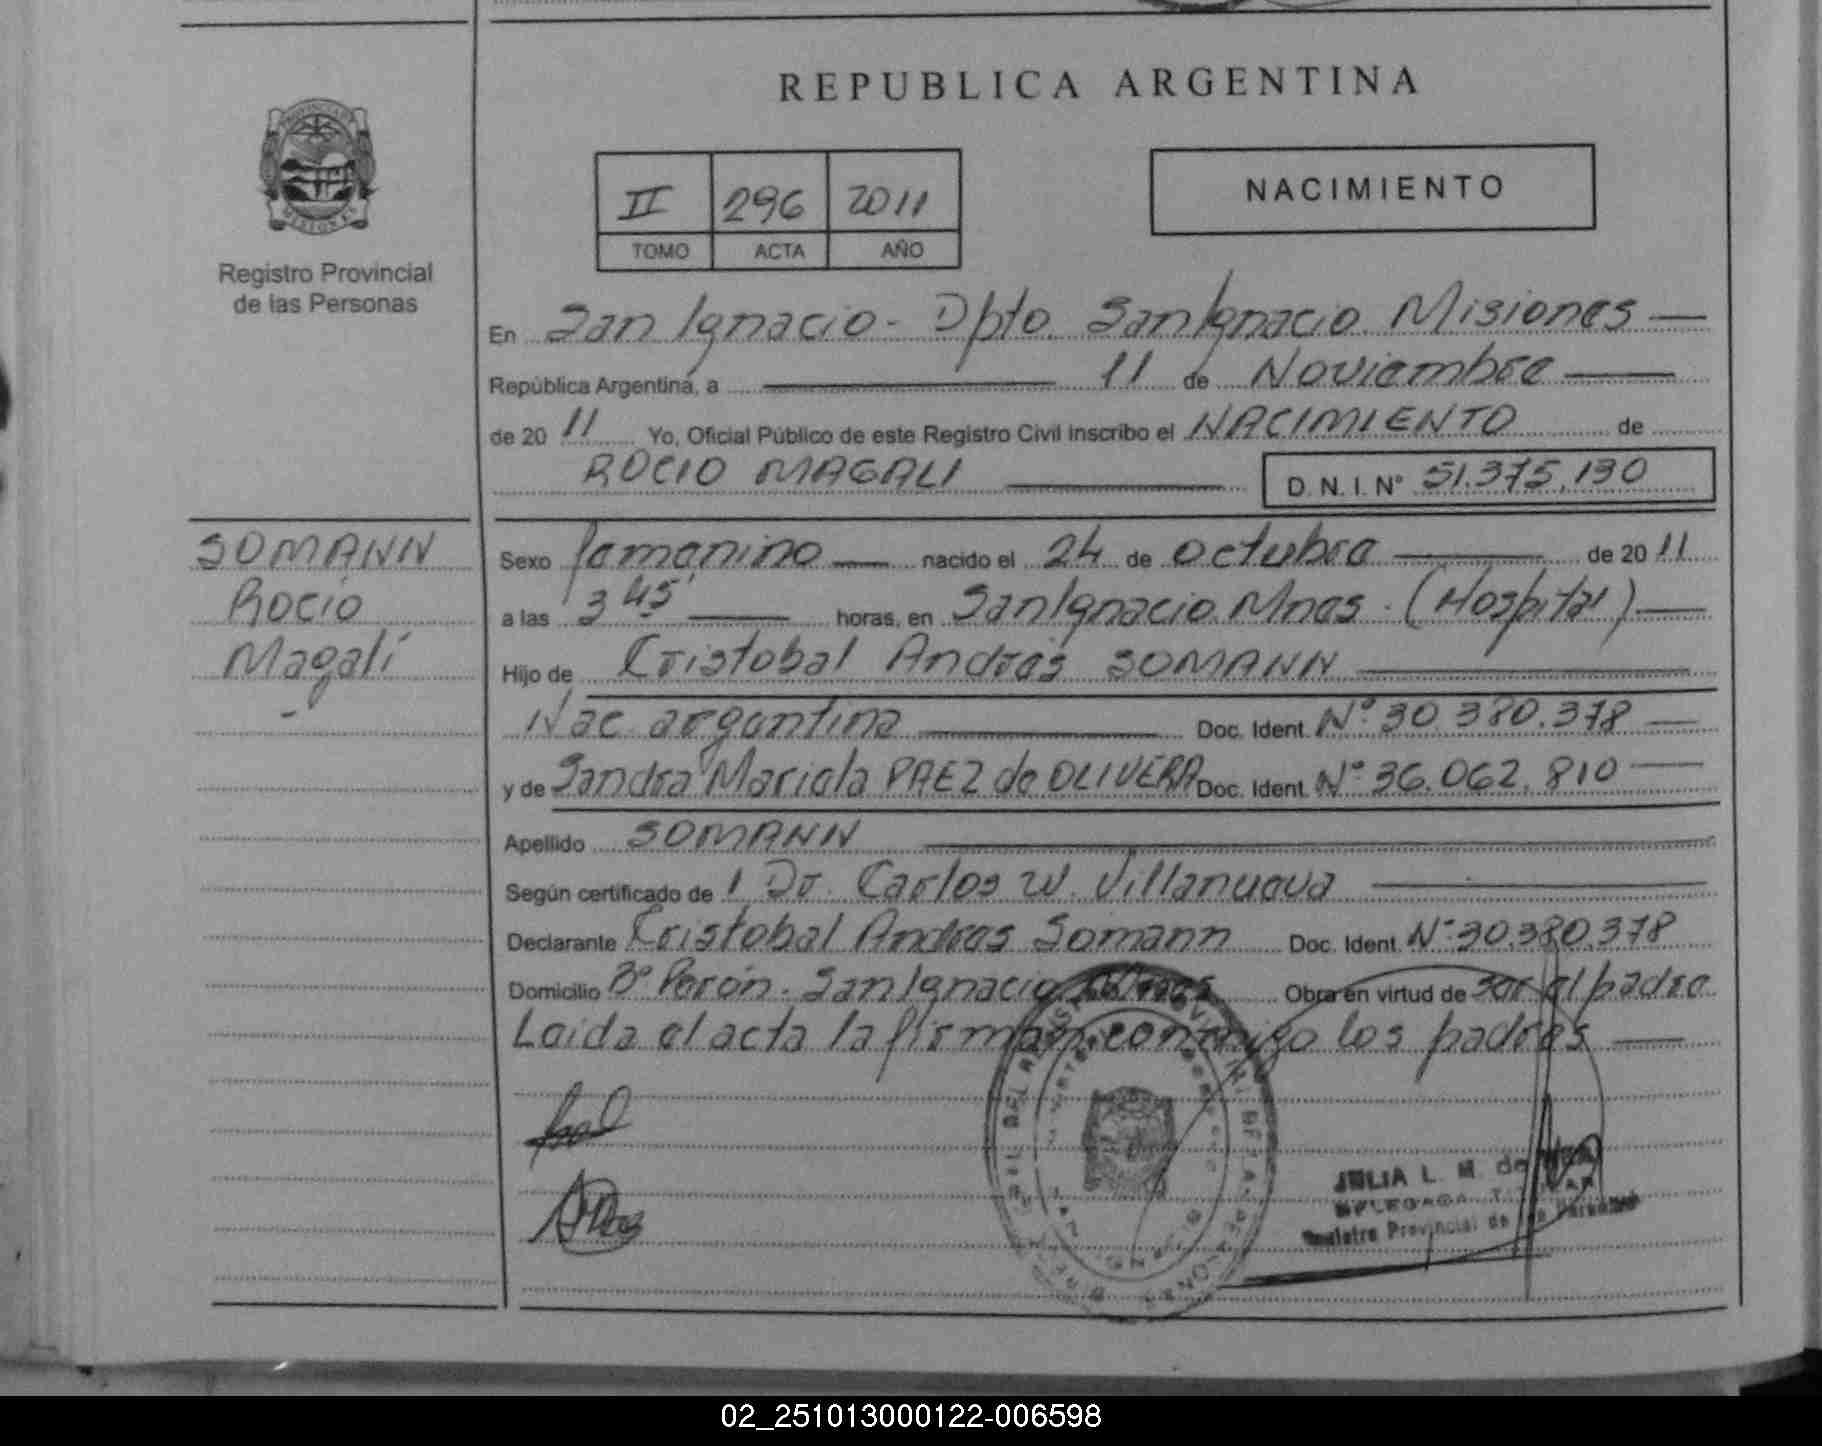 REPUBLICA ARGENTINA
PROVINCIA DE
MISIONES
Registro Provincial
de las Personas
II 296 2011
TOMO ACTA AÑO
NACIMIENTO
En San Ignacio - Dpto. San Ignacio. Misiones
República Argentina, a 11 de Noviembre
de 20 11 Yo, Oficial Público de este Registro Civil inscribo el NACIMIENTO de
ROCIO MAGALI D.N.I. N° 51.375.130
SOMANN
Rocio
Magalí
Sexo femenino nacido el 24 de octubre de 20 11
a las 3 45' horas, en San Ignacio. Mnes. (Hospital)
Hijo de Cristobal Andres SOMANN
Nac. argentina Doc. Ident. N° 30.380.378
y de Sandra Mariela PAEZ de OLIVERA Doc. Ident. N° 36.062.810
Apellido SOMANN
Según certificado de 1 Dr. Carlos W. Villanueva
Declarante Cristobal Andres Somann Doc. Ident. N° 30.380.378
Domicilio B° Perón. San Ignacio Mnes Obra en virtud de ser el padre
Leida el acta la firman conmigo los padres
JULIA L. M. de
Registro Provincial de las Personas
02_251013000122-006598